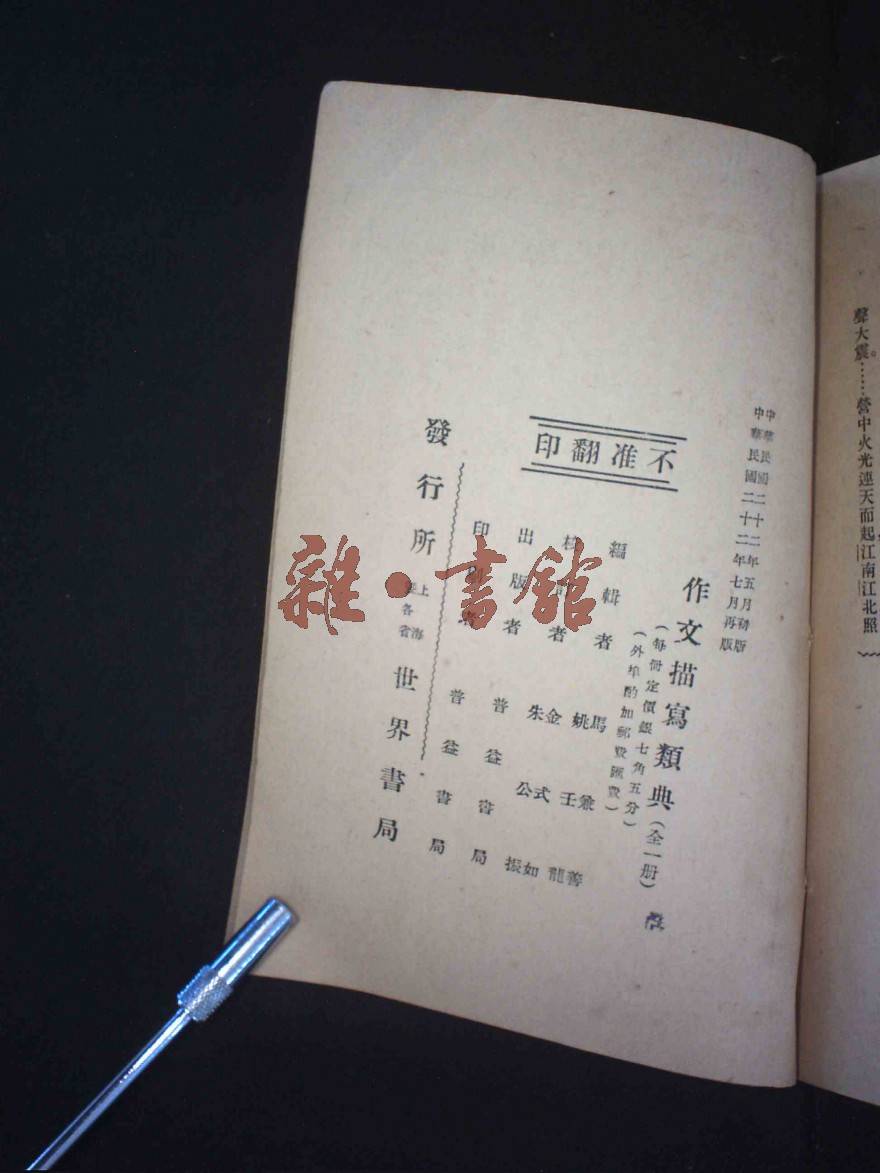 聲大震。……營中火光連天而起江南江北照
中華民國二十二年五月初版
中華民國二十二年七月再版
作文描寫類典(全一册)
(每冊定價銀七角五分)
(外埠酌加郵費匯費)
不准翻印
編輯者 馬兼善 姚壬龍
校訂者 金式如 朱公振
出版者 普益書局
印刷者 普益書局
發行所 上海 各省 世界書局
雜·書館